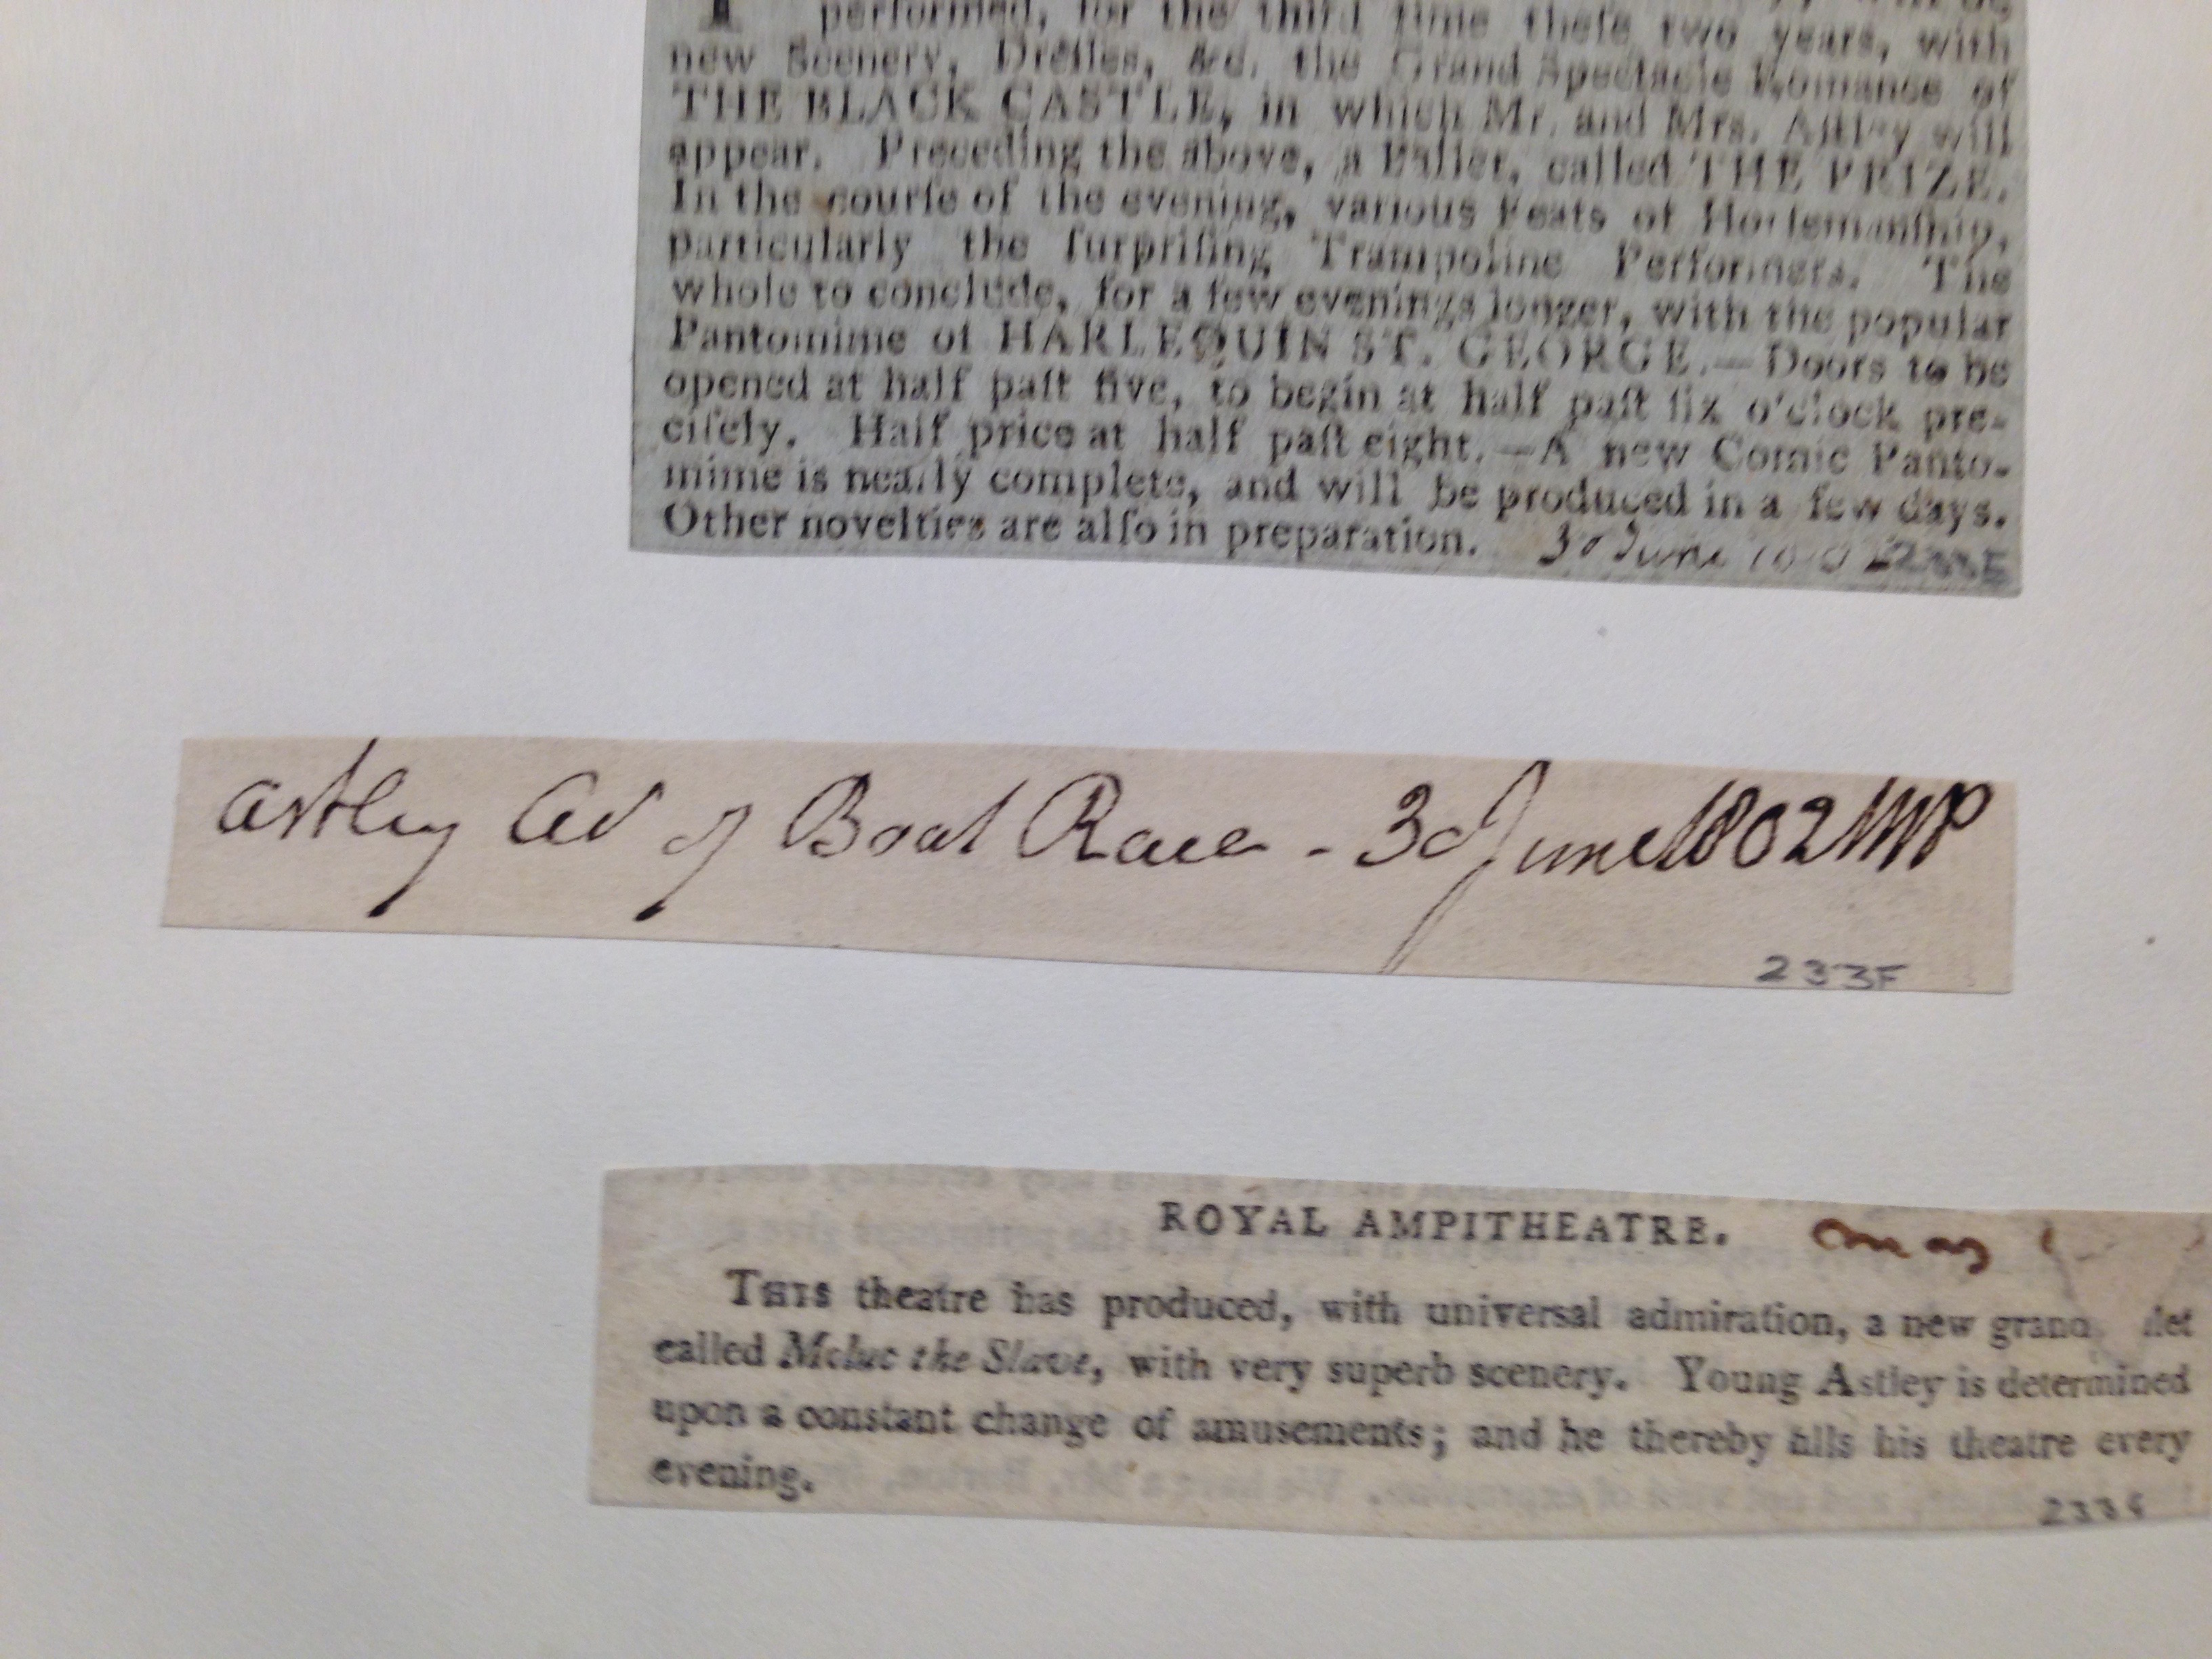 performed, for the third time theſe two years, with
new Scenery, Dreſſes, &c. the Grand Spectacle Romance of
THE BLACK CASTLE, in which Mr. and Mrs. Aſtley will
appear. Preceding the above, a Ballet, called THE PRIZE.
In the courſe of the evening, various Feats of Horſemanſhip,
particularly the ſurpriſing Trampoline Performers. The
whole to conclude, for a few evenings longer, with the popular
Pantomime of HARLEQUIN ST. GEORGE.—Doors to be
opened at half paſt five, to begin at half paſt ſix o'clock pre-
ciſely. Half price at half paſt eight.—A new Comic Panto-
mime is nearly complete, and will be produced in a few days.
Other novelties are alſo in preparation. 30 June
Astley Ad of Boat Race - 30 June 1802 MP
233F
ROYAL AMPITHEATRE. May
THIS theatre has produced, with universal admiration, a new grand let
called Meluc the Slave, with very superb scenery. Young Astley is determined
upon a constant change of amusements; and he thereby fills his theatre every
evening.